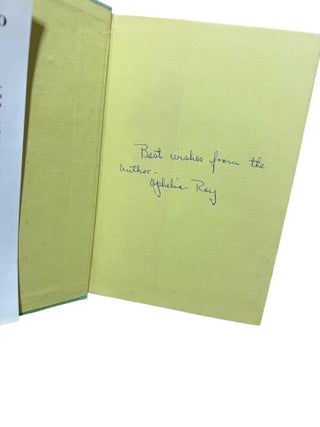 Best wishes from the
Author.
Ophelia Ray